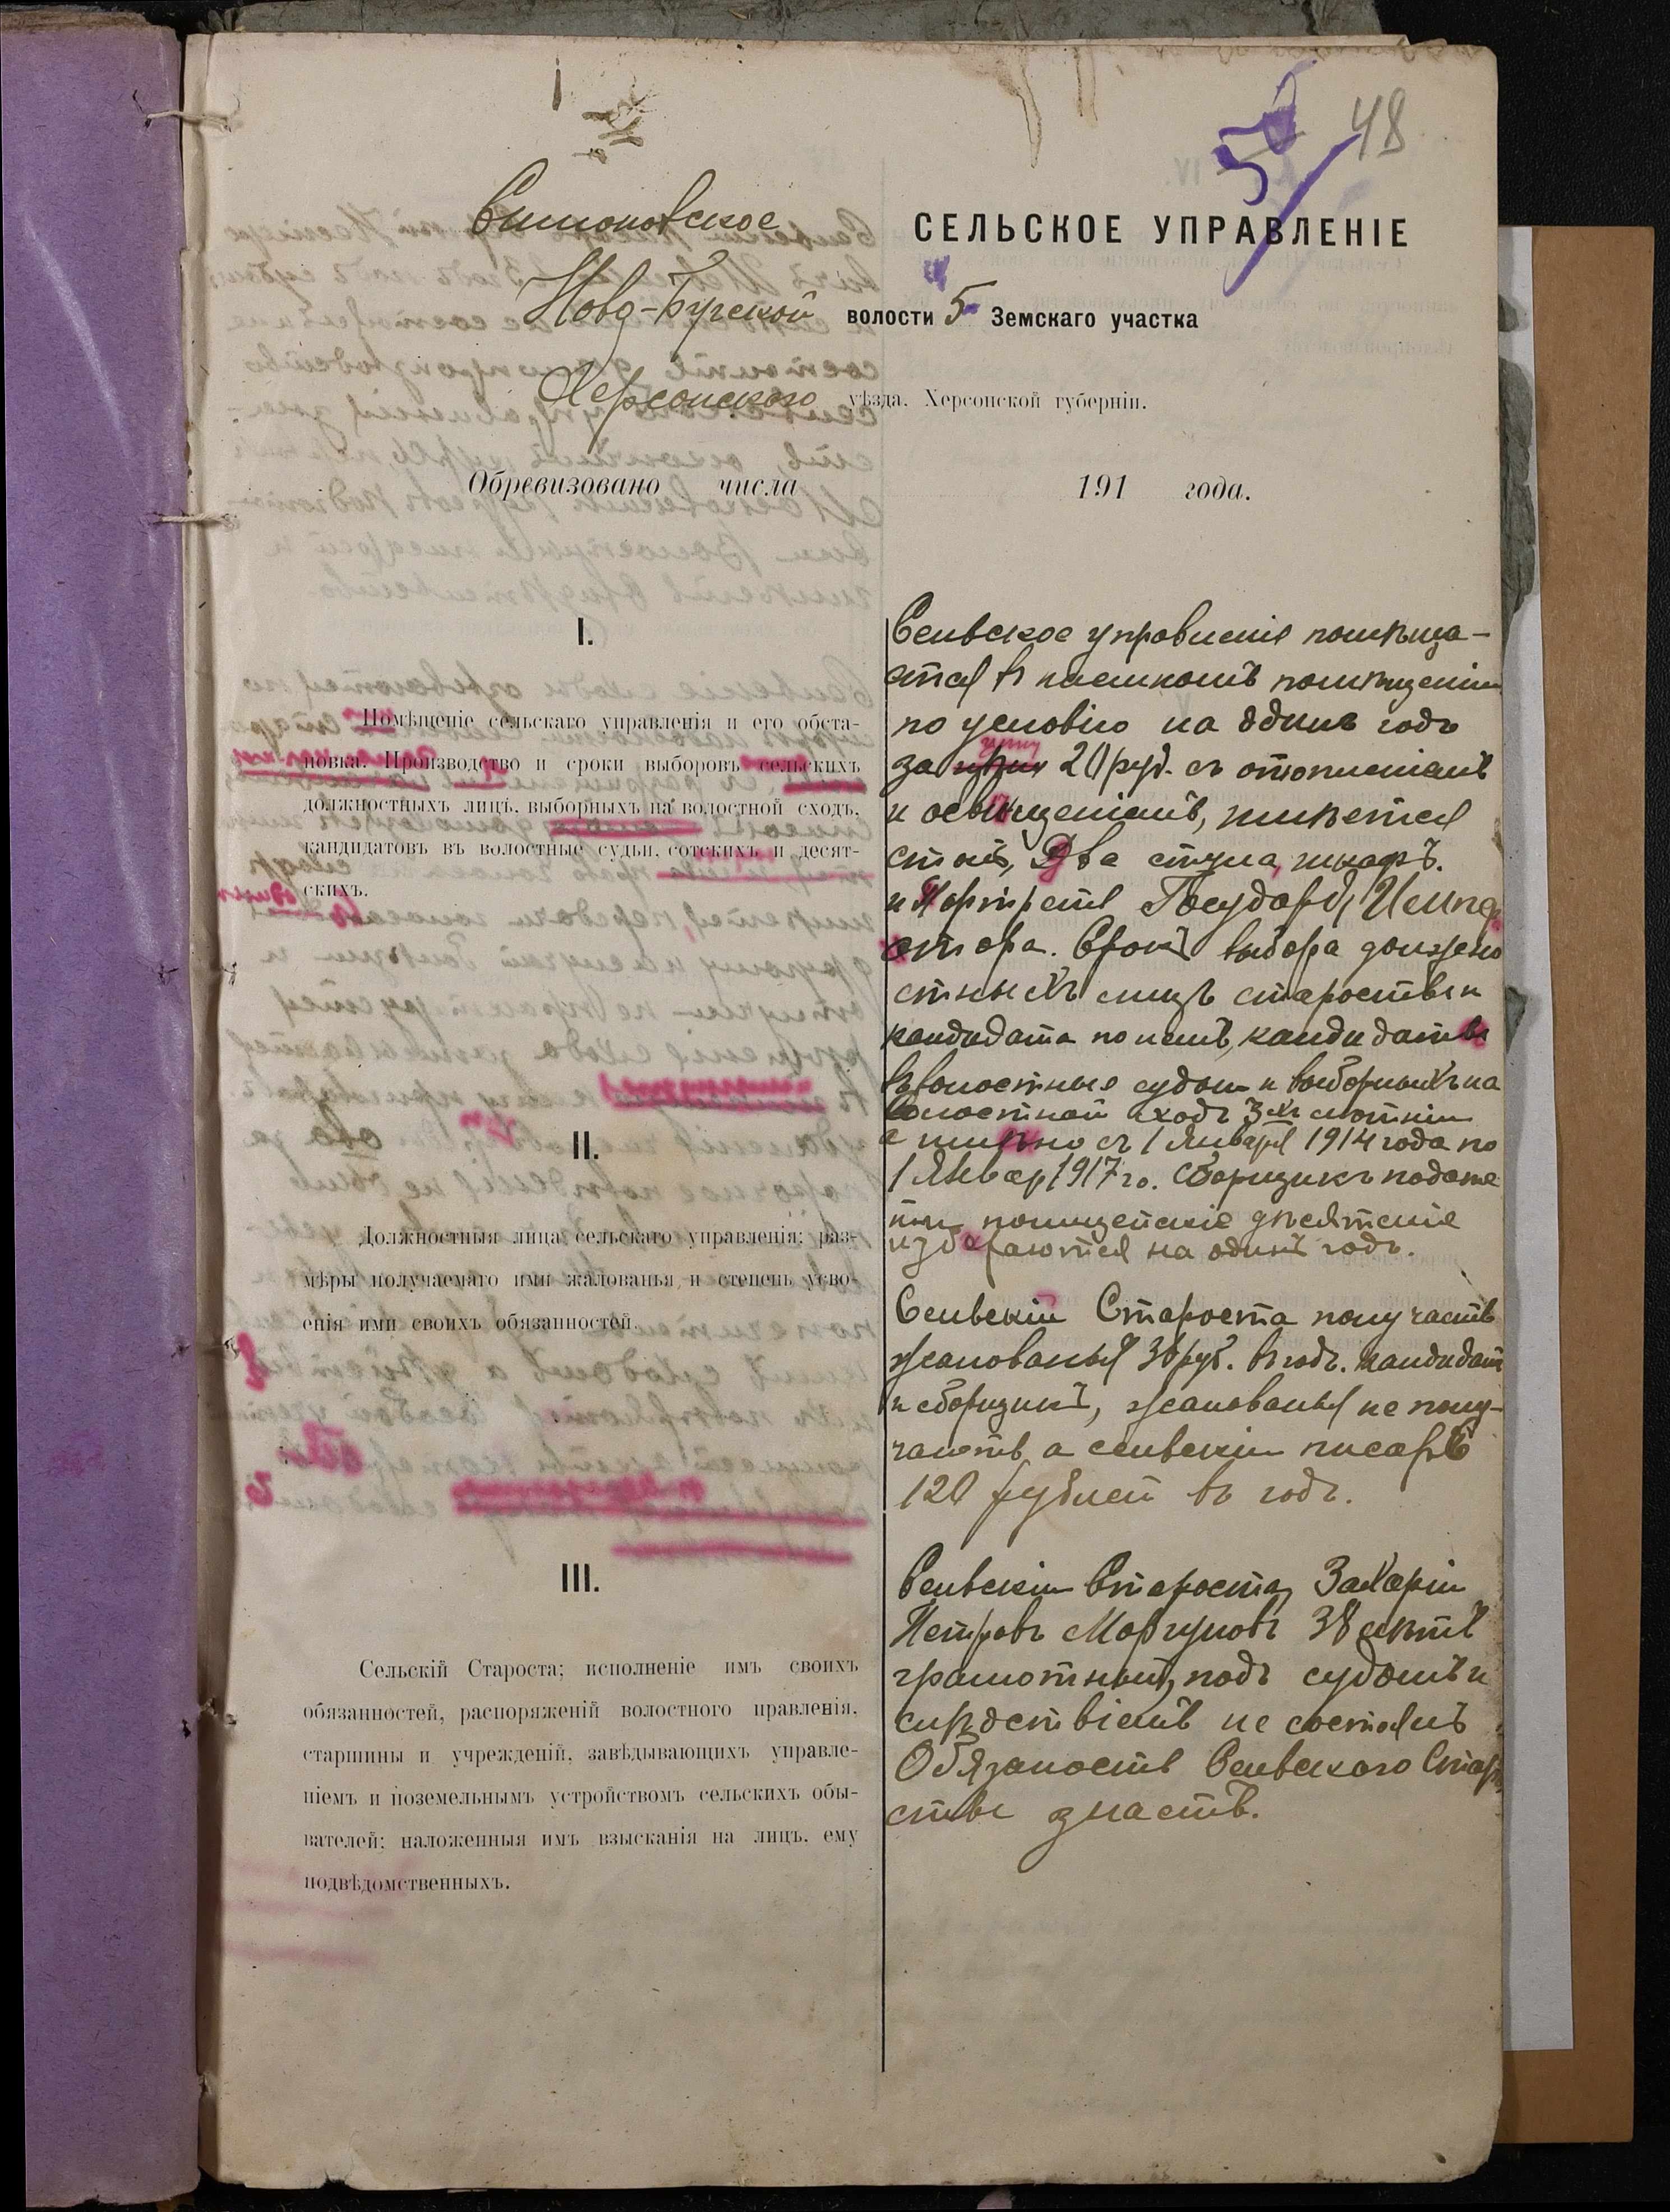 50 48
Симоновское СЕЛЬСКОЕ УПРАВЛЕНІЕ
Ново-Бугской волости 5 Земскаго участка
Херсонского уѣзда, Херсонской губерніи.
Обревизовано числа 191 года.
I.
Помѣщеніе сельскаго управленія и его обста-
новка. Производство и сроки выборовъ сельскихъ
должностныхъ лицъ, выборныхъ на волостной сходъ,
кандидатовъ въ волостные судьи, сотскихъ и десят-
скихъ.
Сельское управленіе помѣща-
ется в наемномъ помѣщеніи
по условію на одинъ годъ
за цѣну 20 руб. съ отопленіемъ
и освѣщеніемъ, имѣется
столъ, Два стула, шкафъ.
и Портретъ Государя Импер
атора. Срокъ выбора должно
стныхъ лицъ старосты и
кандидата по немъ, кандидаты
въ волостные судьи и выборныхъ на
Волостной сходъ 3хъ лѣтній
а имѣно съ 1 Января 1914 года по
1 Январ 1917 го. Сборщикъ подате
й и полицейскіе десятскіе
избираются на одинъ годъ.
II.
Должностныя лица сельскаго управленія; раз-
мѣры получаемаго ими жалованья и степень усво-
енія ими своихъ обязанностей.
Сельскій Староста получаетъ
жалованья 30 руб. въ годъ. кандидатъ
и сборщикъ, жалованья не полу-
чаютъ, а сельскій писарь
120 рублей въ годъ.
III.
Сельскій Староста; исполненіе имъ своихъ
обязанностей, распоряженій волостного правленія,
старшины и учрежденій, завѣдывающихъ управле-
ніемъ и поземельнымъ устройствомъ сельскихъ обы-
вателей; наложенныя имъ взысканія на лицъ, ему
подвѣдомственныхъ.
Сельскій Староста, Захарій
Петровъ Моргуновъ 38 лѣтъ
грамотный, подъ судомъ и
слѣдствіемъ не состоялъ
Обязаность Сельского Старо
сты знаетъ.